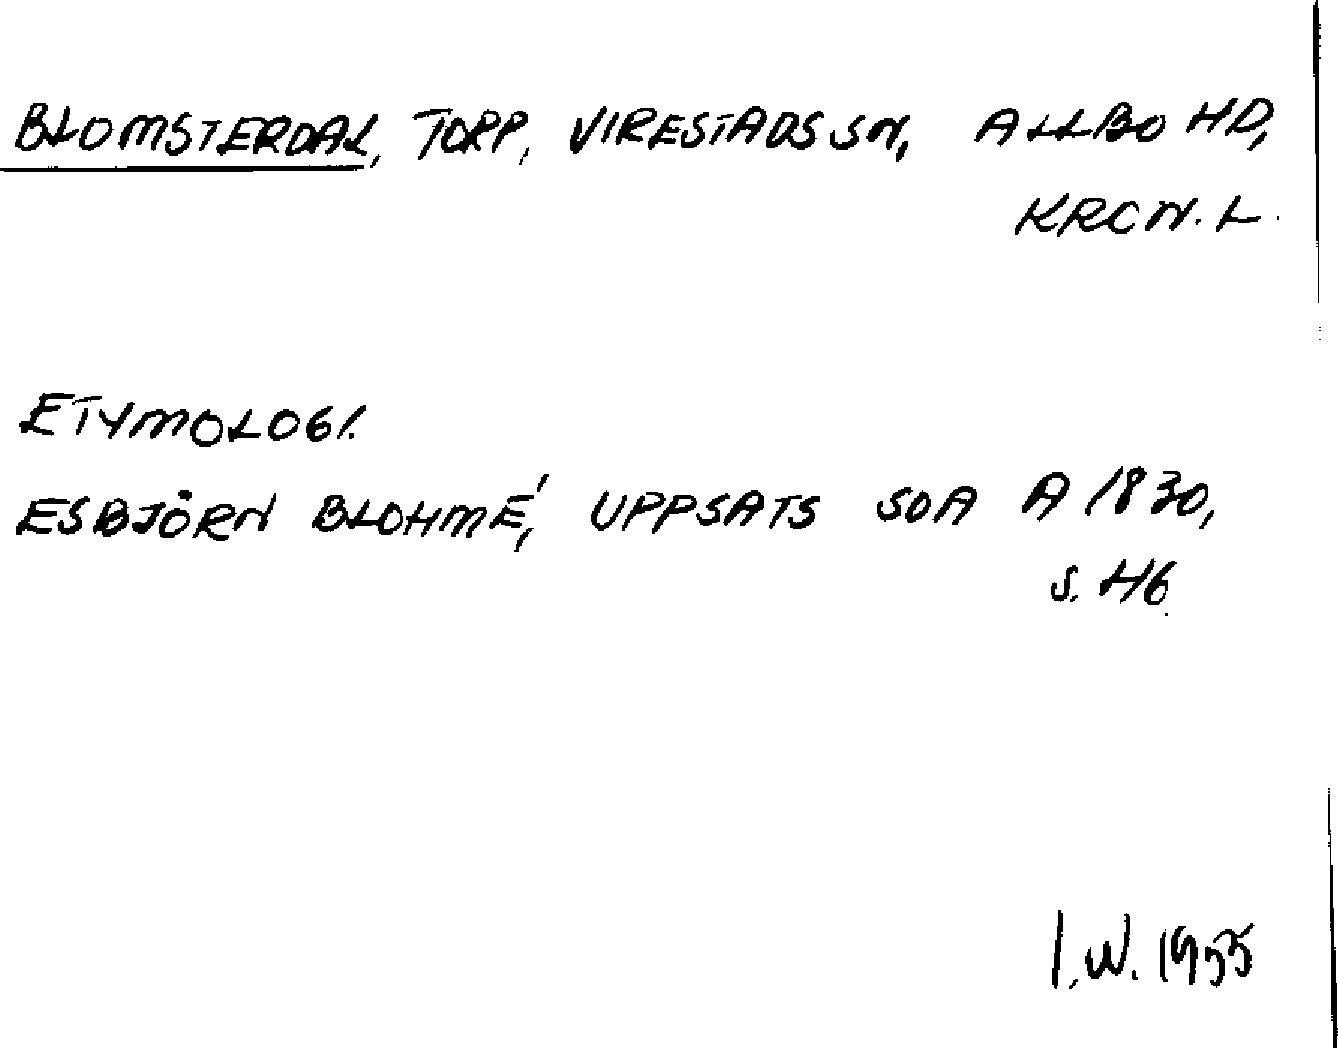 BLOMSTERDAL, TORP, VIRESTADS SN, ALLBO HD,
KRON. L.
ETYMOLOGI.
ESBJÖRN BLOHMÉ, UPPSATS SOA A 1830,
S. 46.
I.W. 1955